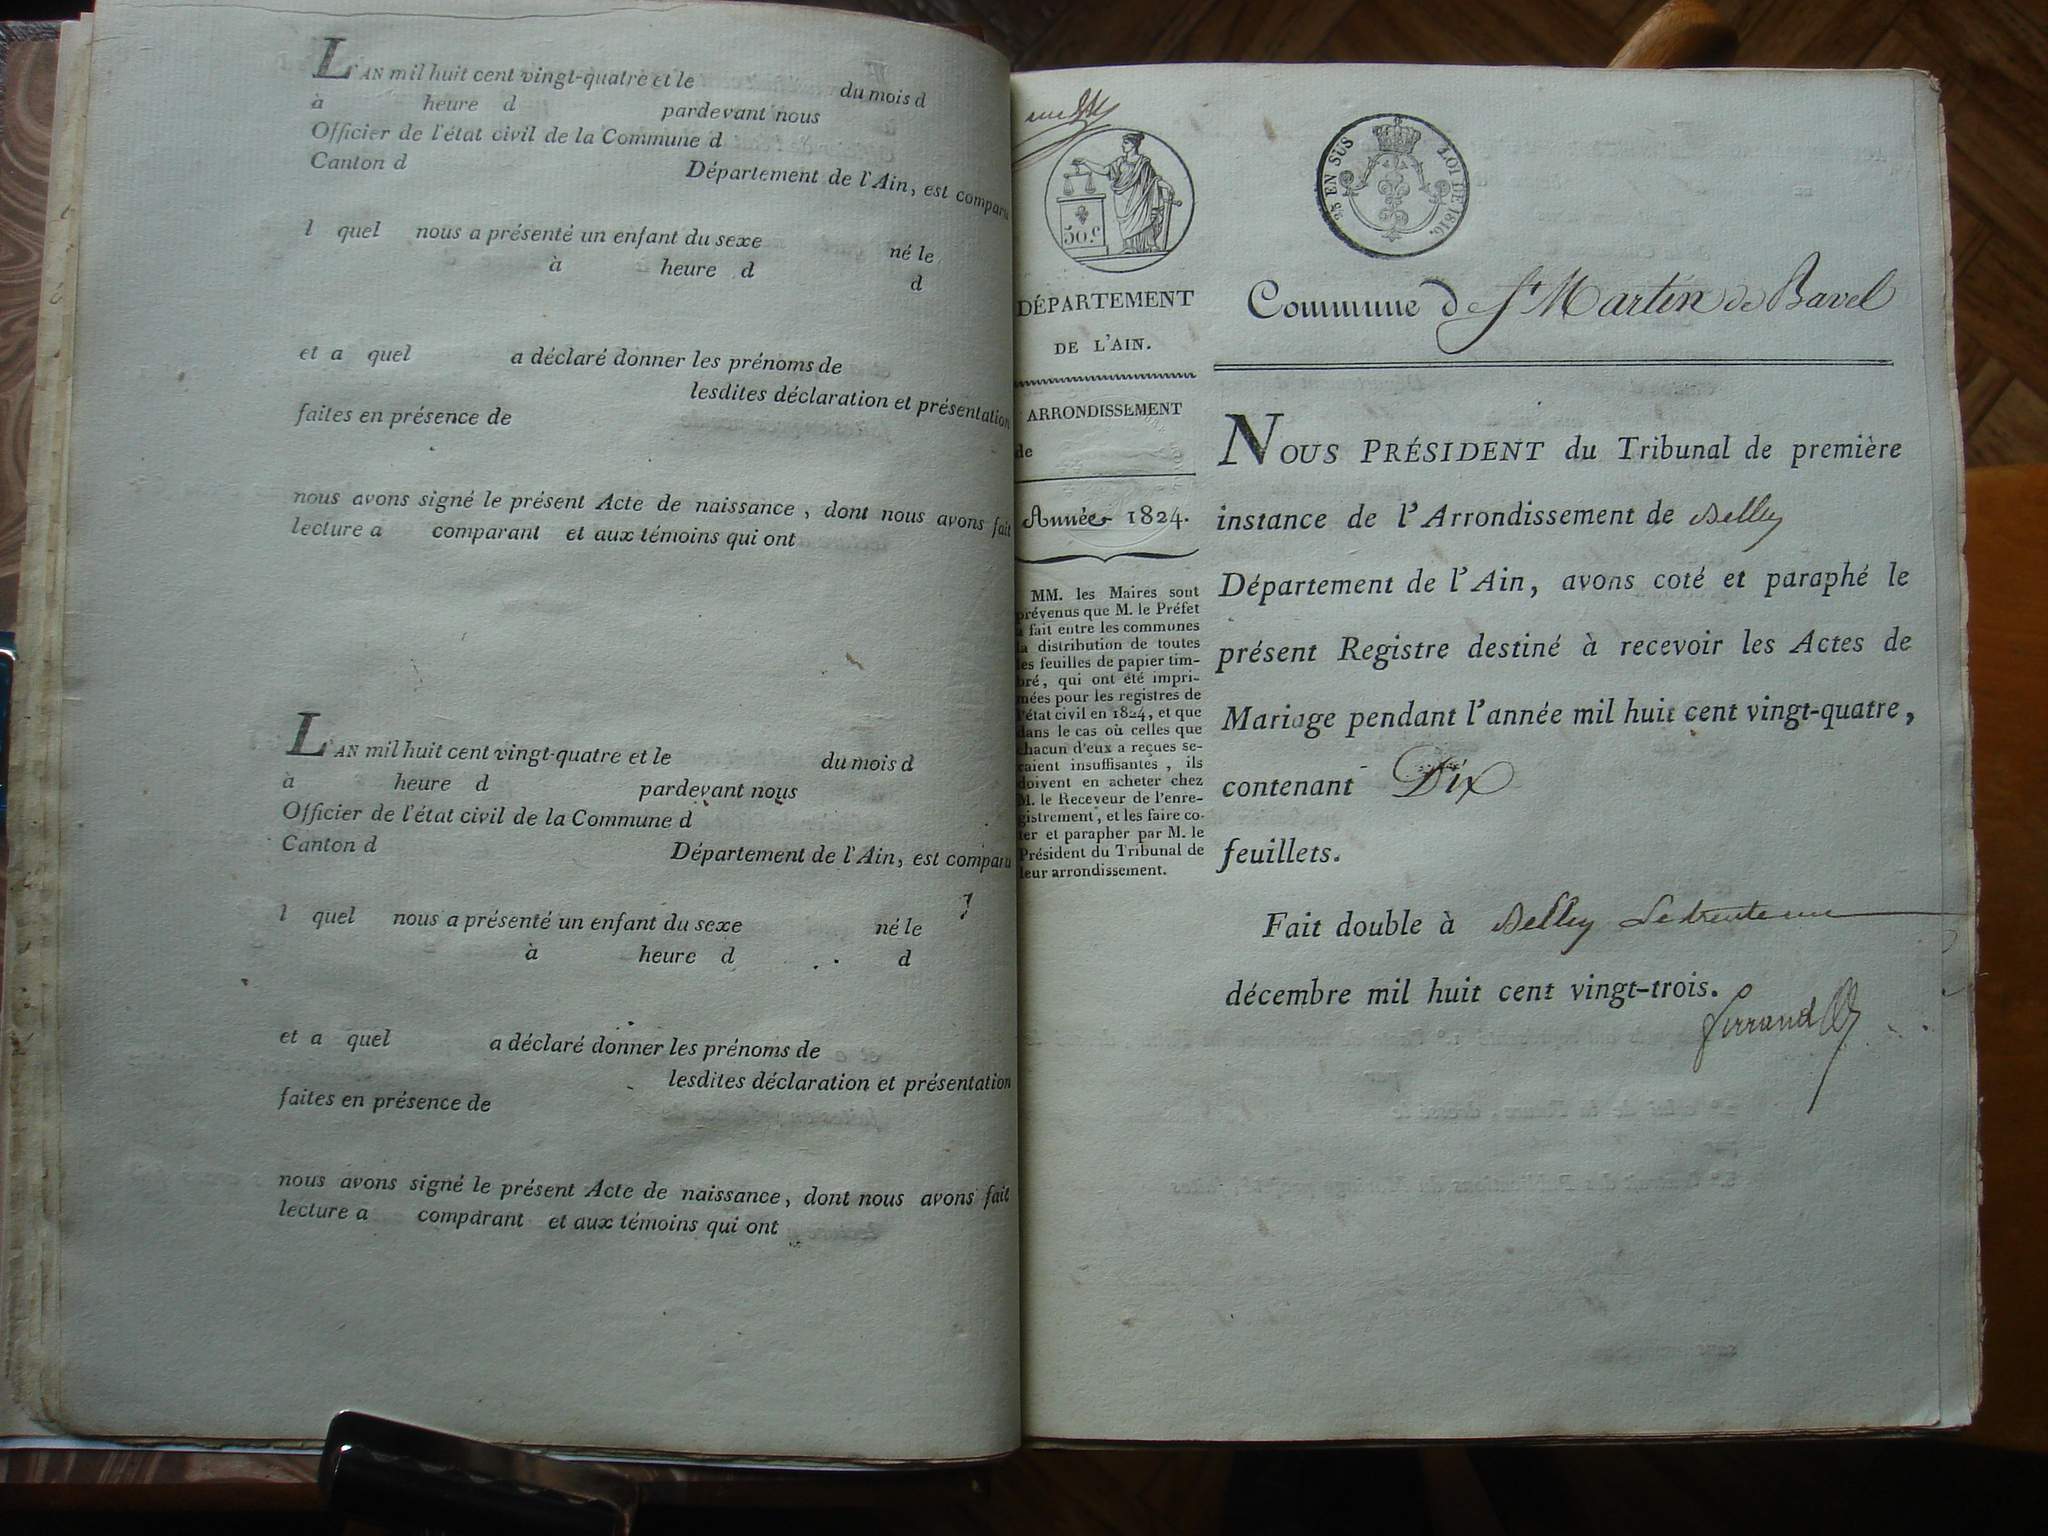 L'AN mil huit cent vingt-quatre et le du mois d
à heure d pardevant nous
Officier de l'état civil de la Commune d
Canton d Département de l'Ain, est comparu
l quel nous a présenté un enfant du sexe né le
à heure d d
et a quel a déclaré donner les prénoms de
lesdites déclaration et présentation
faites en présence de
nous avons signé le présent Acte de naissance, dont nous avons fait
lecture a comparant et aux témoins qui ont
L'AN mil huit cent vingt-quatre et le du mois d
à heure d pardevant nous
Officier de l'état civil de la Commune d
Canton d Département de l'Ain, est comparu
l quel nous a présenté un enfant du sexe né le
à heure d d
et a quel a déclaré donner les prénoms de
lesdites déclaration et présentation
faites en présence de
nous avons signé le présent Acte de naissance, dont nous avons fait
lecture a comparant et aux témoins qui ont
50 c
25 EN SUS LOI DE 1816.
DÉPARTEMENT
DE L'AIN.
ARRONDISSEMENT
de
Année 1824.
MM. les Maires sont
prévenus que M. le Préfet
a fait entre les communes
la distribution de toutes
les feuilles de papier tim-
bré, qui ont été impri-
mées pour les registres de
l'état civil en 1824, et que
dans le cas où celles que
chacun d'eux a reçues se-
raient insuffisantes, ils
doivent en acheter chez
M. le Receveur de l'enre-
gistrement, et les faire co-
ter et parapher par M. le
Président du Tribunal de
leur arrondissement.
Commune de St Martin de Bavel
NOUS PRÉSIDENT du Tribunal de première
instance de l'Arrondissement de Belley
Département de l'Ain, avons coté et paraphé le
présent Registre destiné à recevoir les Actes de
Mariage pendant l'année mil huit cent vingt-quatre,
contenant Dix
feuillets.
Fait double à Belley Le trente un
décembre mil huit cent vingt-trois.